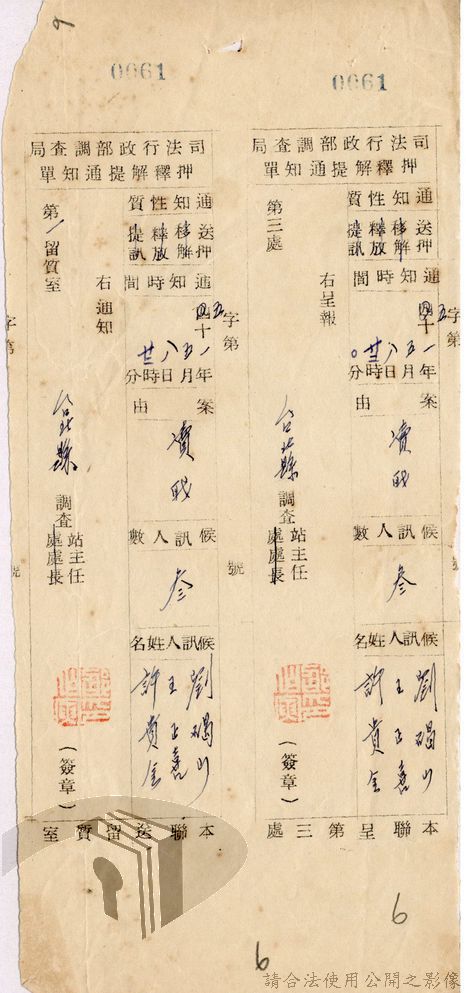 0661
司法行政部調查局
押釋解提通知單
通知性質
送移釋提
押解放訊
通知時間
五四十
一年五月八日廿三時〇分
案由
瀆職
候訊人數
叁
候訊人姓名
劉碣川
王正喜
許貴全
第三處
右呈報
台北縣調查站主任
處處長
(簽章)
本聯呈第三處
字第
號
0661
司法行政部調查局
押釋解提通知單
通知性質
送移釋提
押解放訊
通知時間
五四十
一年五月八日廿三時分
案由
瀆職
候訊人數
叁
候訊人姓名
劉碣川
王正喜
許貴全
第一留質室
右通知
台北縣調查站主任
處處長
(簽章)
本聯送留質室
字第
號
6
6
請合法使用公開之影像